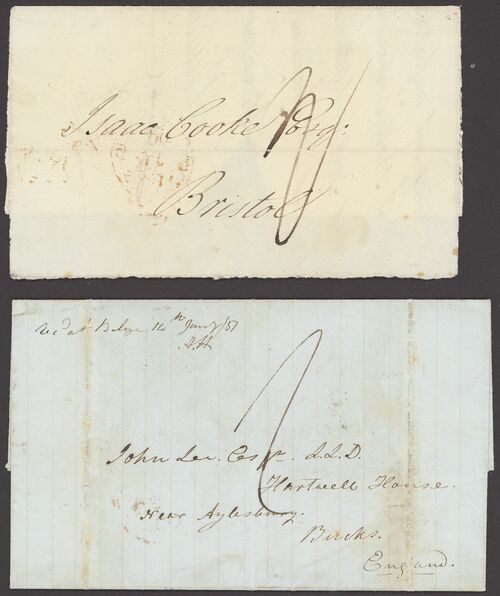 Isaac Cooke Esqr.
Bristol
Recd at Belize 14th Jany /51
A.H.
John Lee Esqr. L.L.D.
Hartwell House.
Near Aylesbury.
Bucks.
England.